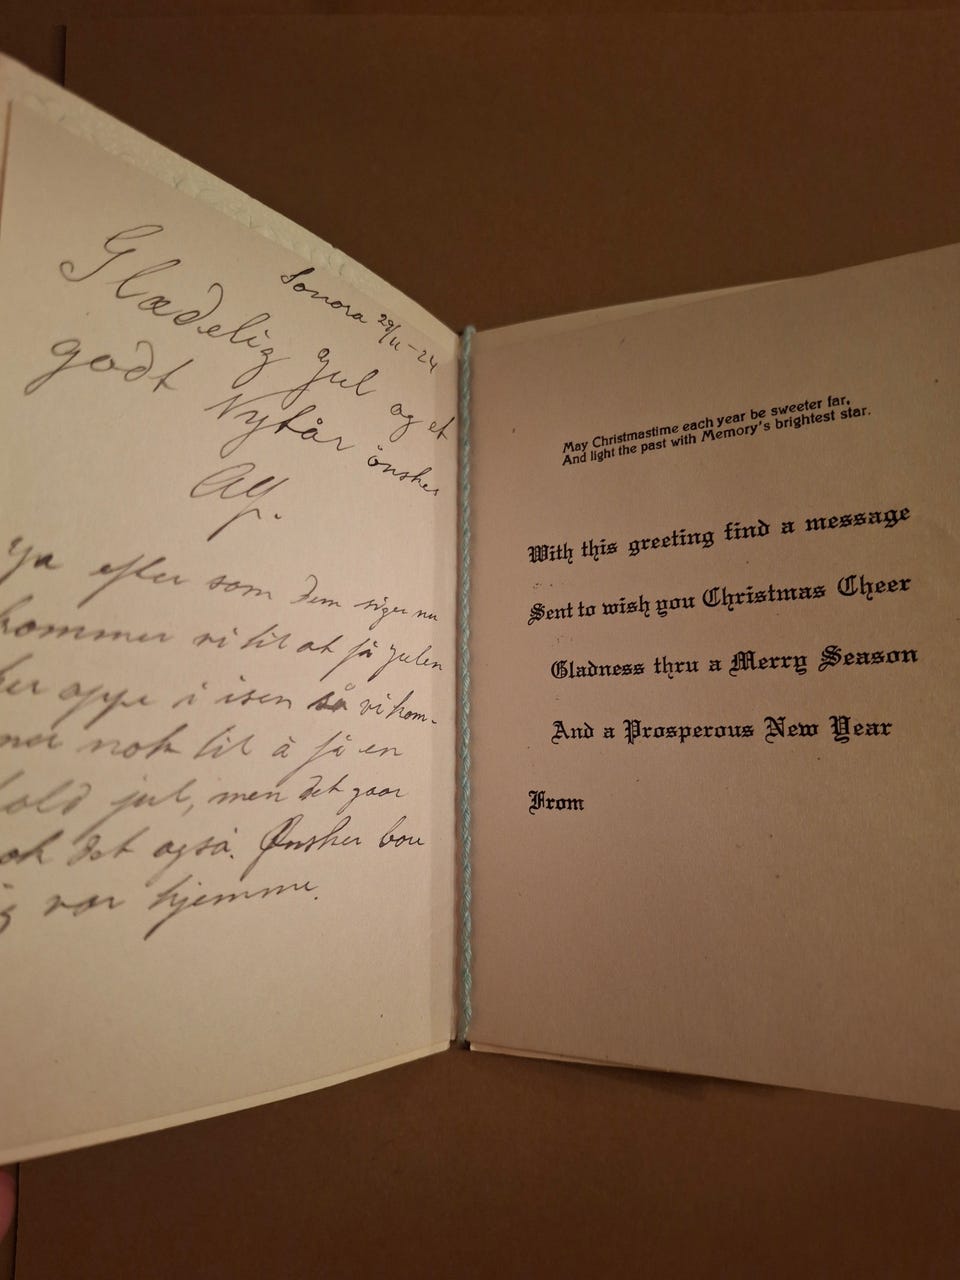 Sonora 29/11-24
Glædelig Jul og et
godt Nytår önsker
Alf.
Ja efter som dem siger nu
kommer vi til at få Julen
her oppe i isen så vi kom-
mer nok til å få en
kold jul, men det gaar
nok det også. Ønsker bou
jeg var hjemme.
May Christmastime each year be sweeter far,
And light the past with Memory's brightest star.
With this greeting find a message
Sent to wish you Christmas Cheer
Gladness thru a Merry Season
And a Prosperous New Year
From